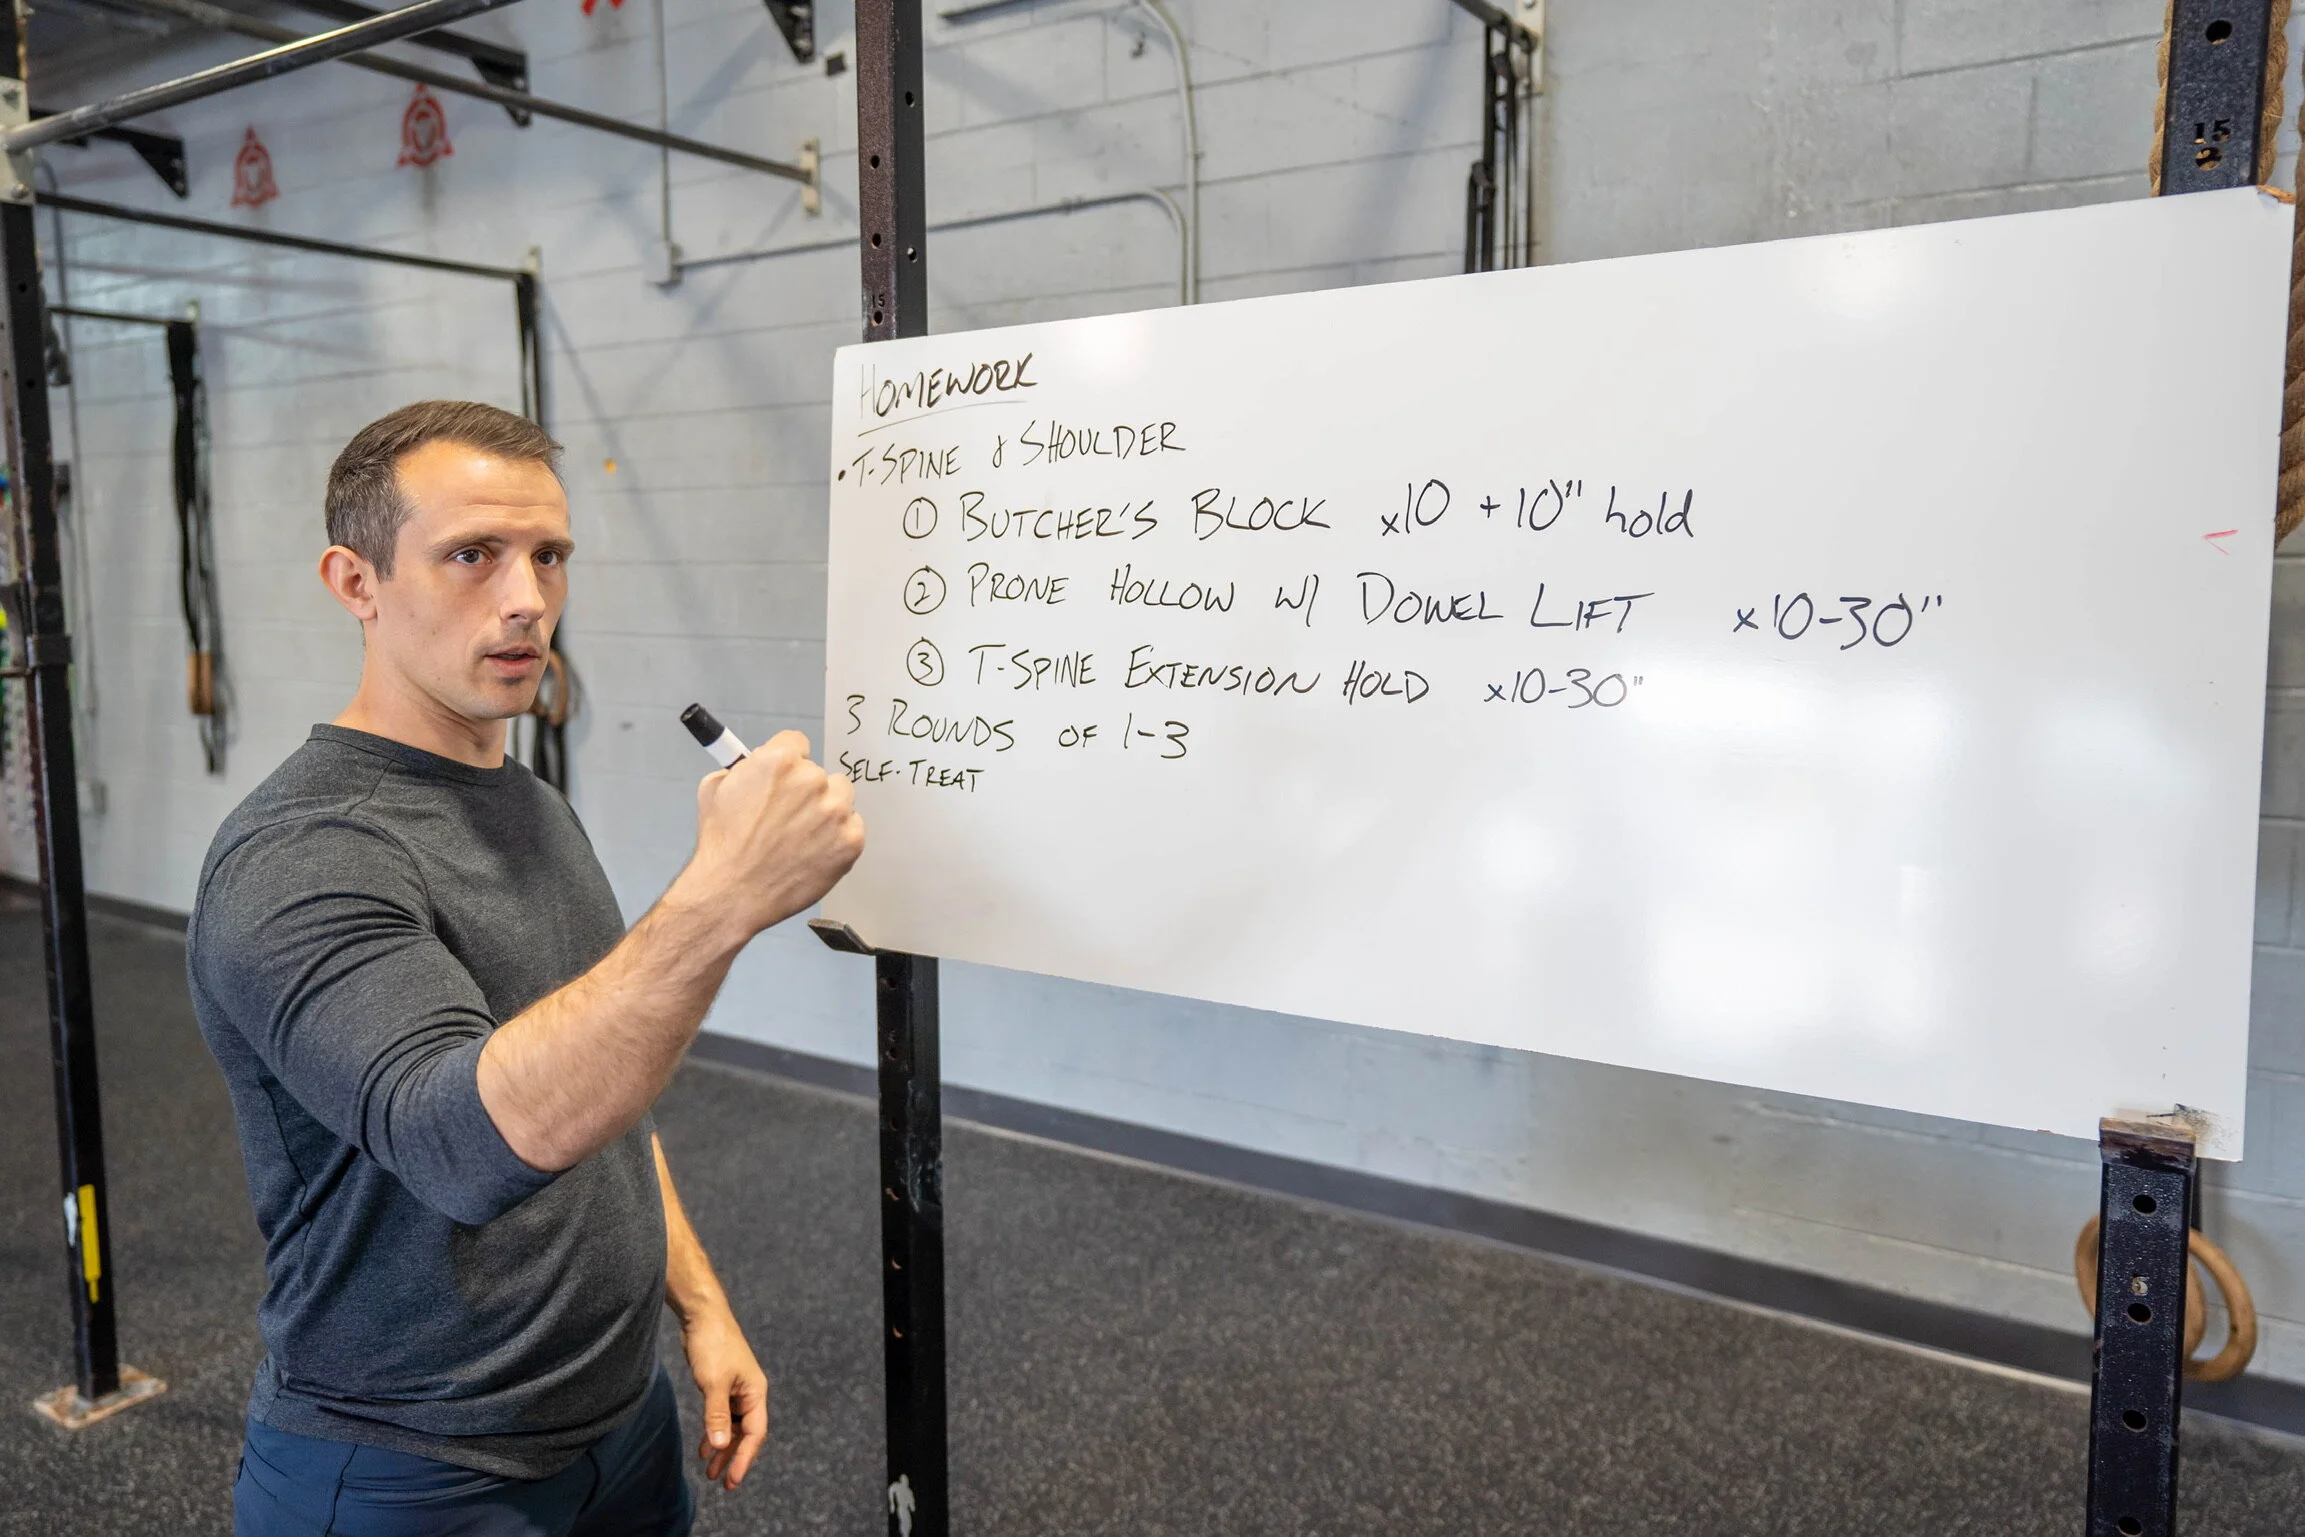 HOMEWORK
• T-SPINE & SHOULDER
① BUTCHER'S BLOCK x10 + 10" hold
② PRONE HOLLOW W/ DOWEL LIFT x10-30"
③ T-SPINE EXTENSION HOLD x10-30"
3 ROUNDS OF 1-3
SELF-TREAT
15
15